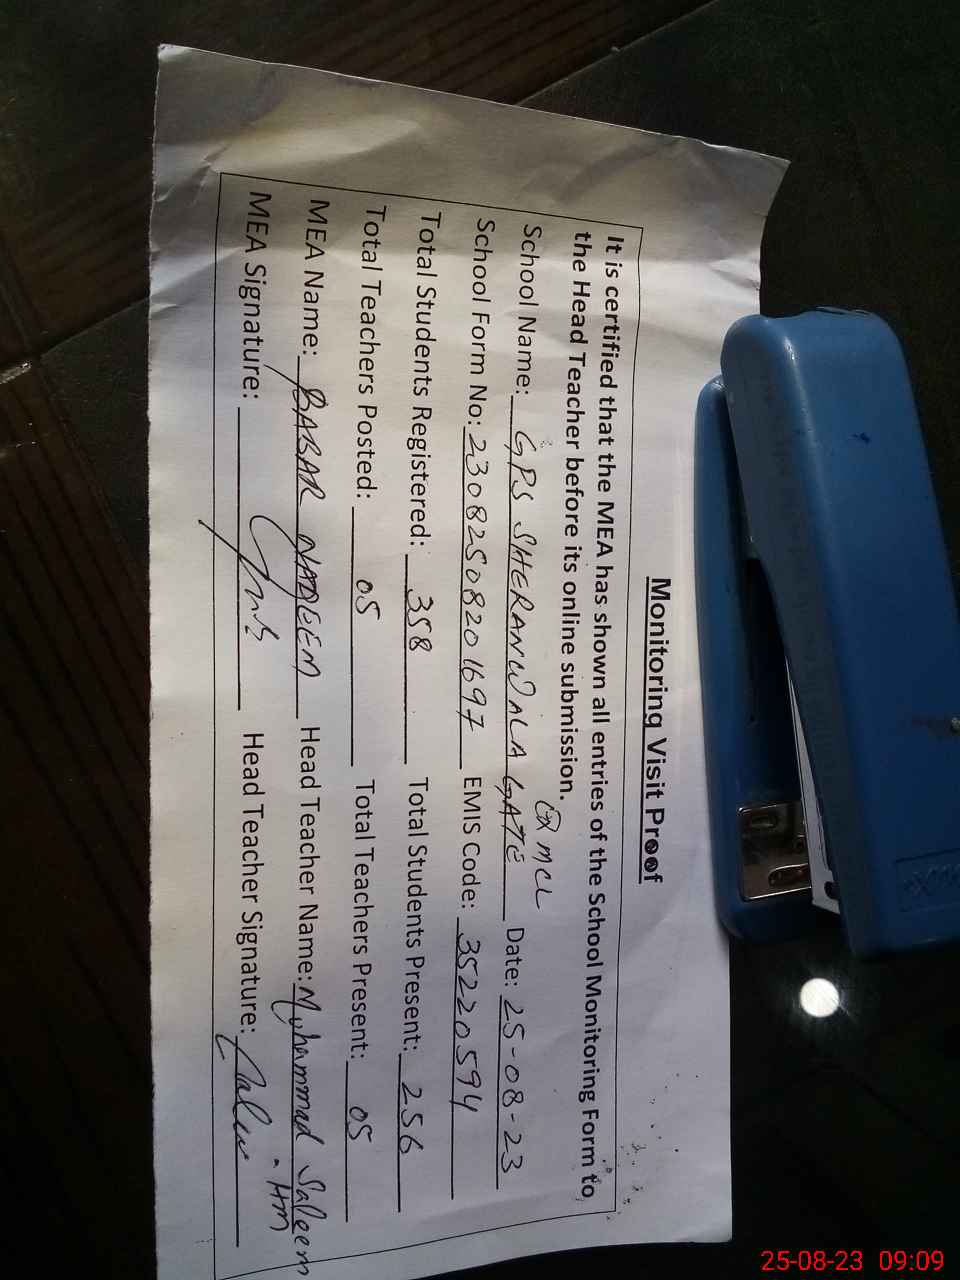 Monitoring Visit Proof
It is certified that the MEA has shown all entries of the School Monitoring Form to
the Head Teacher before its online submission.
Ex MCL
School Name: GPS SHERANWALA GATE Date: 25-08-23
School Form No: 23082508201697 EMIS Code: 35220594
Total Students Registered: 358 Total Students Present: 256
Total Teachers Posted: 05 Total Teachers Present: 05
MEA Name: BABAR NADEEM Head Teacher Name: Muhammad Saleem
HM
MEA Signature: Head Teacher Signature: Saleem
25-08-23 09:09